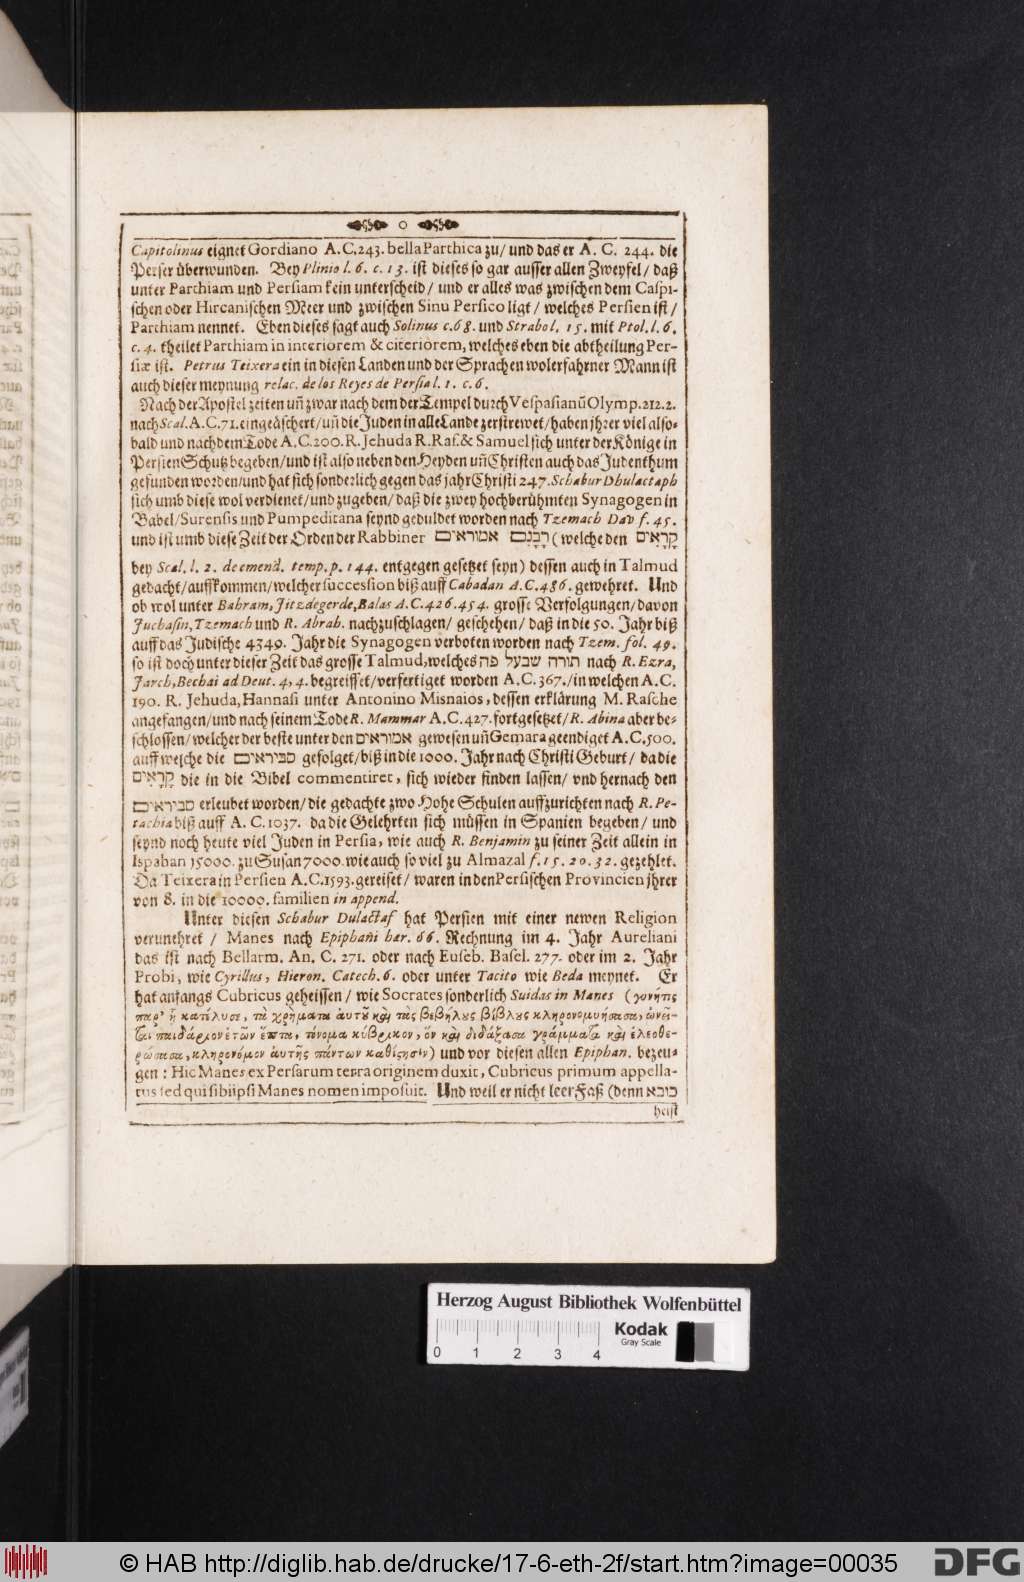 Capitolinus eignet Gordiano A.C.243. bella Parthica zu/ und das er A. C. 244. die
Perser überwunden. Bey Plinio l. 6. c. 13. ist dieses so gar ausser allen Zweyfel/ daß
unter Parthiam und Persiam kein unterscheid/ und er alles was zwischen dem Caspi-
schen oder Hircanischen Meer und zwischen Sinu Persico ligt/ welches Persien ist/
Parthiam nennet. Eben dieses sagt auch Solinus c.68. und Strabo l. 15. mit Ptol. l. 6.
c. 4. theilet Parthiam in interiorem & citeriorem, welches eben die abtheilung Per-
siæ ist. Petrus Teixera ein in diesen Landen und der Sprachen wolerfahrner Mann ist
auch dieser meynung relac. de los Reyes de Persia l. 1. c. 6.
Nach der Apostel zeiten uñ zwar nach dem der Tempel durch Vespasianũ Olymp. 212. 2.
nach Scal. A.C. 71. eingeäschert/ uñ die Juden in alle Lande zerstrewet/ haben jhrer viel also-
bald und nach dem Tode A.C. 200. R. Jehuda R. Raf. & Samuel sich unter der Könige in
Persien Schutz begeben/ und ist also neben den Heyden uñ Christen auch das Judenthum
gefunden worden/ und hat sich sonderlich gegen das jahr Christi 247. Schabur Dhulactaph
sich umb diese wol verdienet/ und zugeben/ daß die zwey hochberühmten Synagogen in
Babel/ Surensis und Pumpeditana seynd geduldet worden nach Tzemach Dav f. 45.
und ist umb diese Zeit der Orden der Rabbiner רָבָנִם אמוראים (welche den קָרָאִים
bey Scal. l. 2. de emend. temp. p. 144. entgegen gesetzet seyn) dessen auch in Talmud
gedacht/ auffkommen/ welcher succession biß auff Cabadan A.C. 486. gewehret. Und
ob wol unter Bahram, Jitzdegerde, Balas A.C. 426. 454. grosse Verfolgungen/ davon
Juchasin, Tzemach und R. Abrah. nachzuschlagen/ geschehen/ daß in die 50. Jahr biß
auff das Judische 4349. Jahr die Synagogen verboten worden nach Tzem. fol. 49.
so ist doch unter dieser Zeit das grosse Talmud, welches תורה שבעל פה nach R. Ezra,
Jarch, Bechai ad Deut. 4, 4. begreiffet/ verfertiget worden A.C. 367./ in welchen A.C.
190. R. Jehuda, Hannasi unter Antonino Misnaios, dessen erklärung M. Rasche
angefangen/ und nach seinem Tode R. Mammar A.C. 427. fortgesetzet/ R. Abina aber be-
schlossen/ welcher der beste unter den אמוראים gewesen uñ Gemara geendiget A.C. 500.
auff welche die סבוראים gefolget/ biß in die 1000. Jahr nach Christi Geburt/ da die
קָרָאִים die in die Bibel commentiret, sich wieder finden lassen/ vnd hernach den
סבוראים erleubet worden/ die gedachte zwo Hohe Schulen auffzurichten nach R. Pe-
tachia biß auff A. C. 1037. da die Gelehrten sich müssen in Spanien begeben/ und
seynd noch heute viel Juden in Persia, wie auch R. Benjamin zu seiner Zeit allein in
Ispahan 15000. zu Susan 7000. wie auch so viel zu Almazal f. 15. 20. 32. gezehlet.
Da Teixera in Persien A.C. 1593. gereiset/ waren in den Persischen Provincien jhrer
von 8. in die 10000. familien in append.
Unter diesen Schabur Dulactaf hat Persien mit einer newen Religion
verunehret/ Manes nach Epiphañi hær. 66. Rechnung im 4. Jahr Aureliani
das ist nach Bellarm. An. C. 271. oder nach Euseb. Basel. 277. oder im 2. Jahr
Probi, wie Cyrillus, Hieron. Catech. 6. oder unter Tacito wie Beda meynet. Er
hat anfangs Cubricus geheissen/ wie Socrates sonderlich Suidas in Manes (γονήτις
παρ' ᾗ κατέλυσε, τὰ χρήματα αὐτοῦ καὶ τὰς βεβήλους βίβλους κληρονομήσασα, ὠνεῖ-
ται παιδάριον ἐτῶν ἕπτα, τοὔνομα κύβρικον, ὃν καὶ διδάξασα γράμματα καὶ ἐλεοθε-
ρώσασα, κληρονόμον αὐτῆς πάντων καθίστησιν) und vor diesen allen Epiphan. bezeu-
gen: Hic Manes ex Persarum terra originem duxit, Cubricus primum appella-
tus sed qui sibi ipsi Manes nomen imposuit. Und weil er nicht leer Faß (denn כובא
heist
Herzog August Bibliothek Wolfenbüttel
Kodak
Gray Scale
0 1 2 3 4
© HAB http://diglib.hab.de/drucke/17-6-eth-2f/start.htm?image=00035
DFG